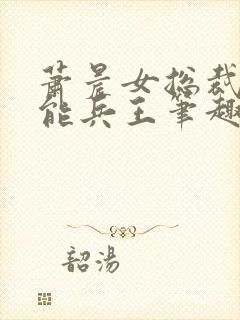 萧晨女总裁
能兵王笔趣
韶汤